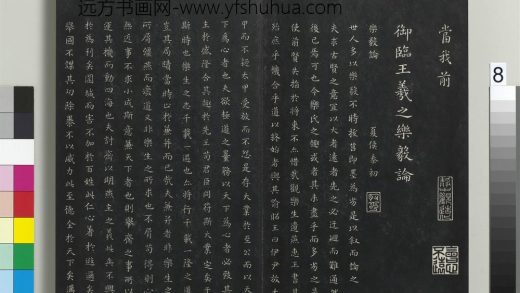 远方书画网-www.yfshuhua.com
當我前
御臨王羲之樂毅論
樂毅論
夏侯泰初
世人多以樂毅不時拔莒即墨為劣是以叙而論之
夫求古賢之意宜以大者遠者先之必迂迴而難通然
後已焉可也今樂氏之趣或者其未盡乎而多劣之是
使前賢失指於將來不亦惜哉觀樂生遺燕惠王書其
殆庶乎機合乎道以終始者與其喻昭王曰伊尹放大
甲而不疑太甲受放而不怨是存大業於至公而以天
下為心者也夫欲極道之量務以天下為心者必致其
主於盛隆合其趣於先王苟君臣同符斯大業定矣于
斯時也樂生之志千載一遇也亦將行千載一隆之道
豈其局蹟當時止於兼并而已哉夫兼并者非樂生之
所屑彊燕而廢道又非樂生之所求也不屑苟得則心
無近事不求小成斯意兼天下者也則舉齊之事所以
運其機而動四海也夫討齊以明燕主之義此兵不興
於為利矣圍城而害不加於百姓此仁心著於遐邇矣
舉國不謀其功除暴不以威力此至德全於天下矣邁
8